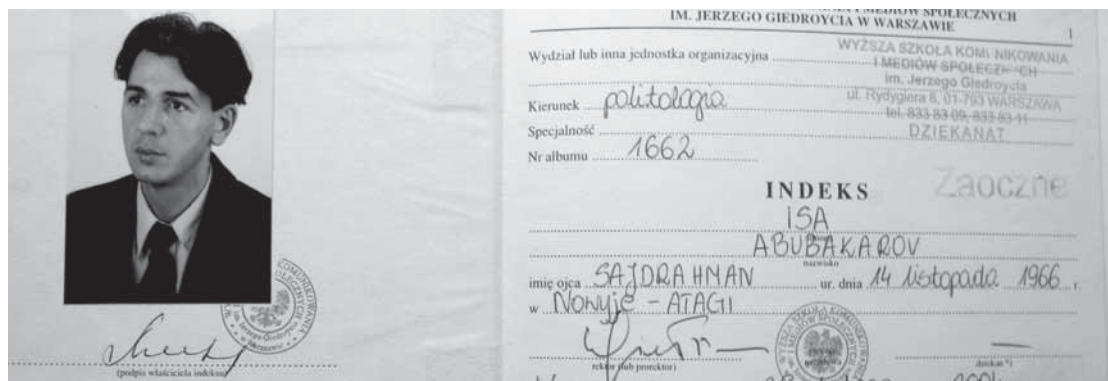 I MEDIÓW SPOŁECZNYCH
IM. JERZEGO GIEDROYCIA W WARSZAWIE
1
Wydział lub inna jednostka organizacyjna
WYŻSZA SZKOŁA KOMUNIKOWANIA
I MEDIÓW SPOŁECZNYCH
im. Jerzego Giedroycia
ul. Rydygiera 8, 01-793 WARSZAWA
tel. 833 83 09, 833 83 11
DZIEKANAT
Kierunek politologia
Specjalność
Nr albumu 1662
INDEKS
Zaoczne
ISA
ABUBAKAROV
nazwisko
imię ojca SAJDRAHMAN ur. dnia 14 listopada 1966 r.
w NOWYJE - ATAGI
rektor (lub prorektor)
dziekan *)
(podpis właściciela indeksu)